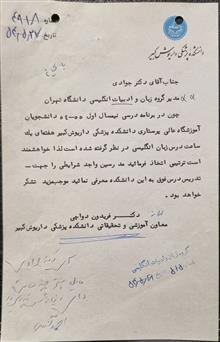 دانشکده پزشکی داریوش کبیر
شماره ۴۹۰۱
تاریخ ۵۴،۵،۲۷
جناب آقای دکتر جوادی
مدیر گروه زبان و ادبیات انگلیسی دانشگاه تهران
چون در برنامه درسی نیمسال اول ۵۵-۵۴ دانشجویان
آموزشگاه عالی پرستاری دانشکده پزشکی داریوش کبیر هفته‌ای یک
ساعت درس زبان انگلیسی در نظر گرفته شده است لذا خواهشمند
است ترتیبی اتخاذ فرمائید مدرسین واجد شرایطی را جهت -
تدریس درس فوق به این دانشکده معرفی نمائید موجب مزید تشکر
خواهد بود .
دکتر فریدون دواچی
معاون آموزشی و تحقیقاتی دانشکده پزشکی داریوش کبیر
گروه زبان و ادبیات انگلیسی